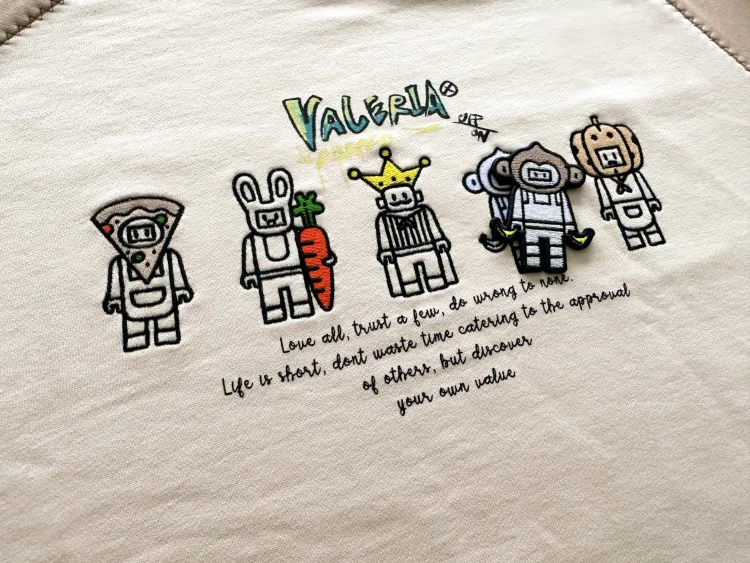 VALERIA
OFF
ON
Love all, trust a few, do wrong to none.
Life is short, dont waste time catering to the approval
of others, but discover
your own value